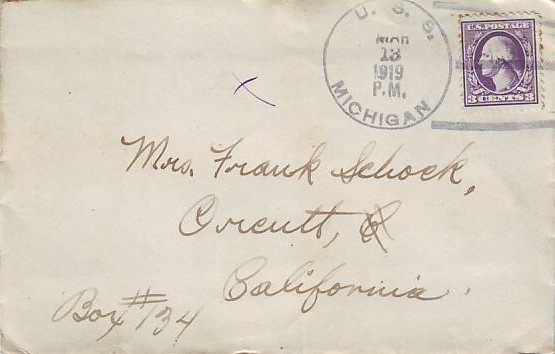 U. S. S.
MAR
13
1919
P.M.
MICHIGAN
U.S. POSTAGE
3 CENTS 3
Mrs. Frank Schock,
Orcutt,
California.
Box #134